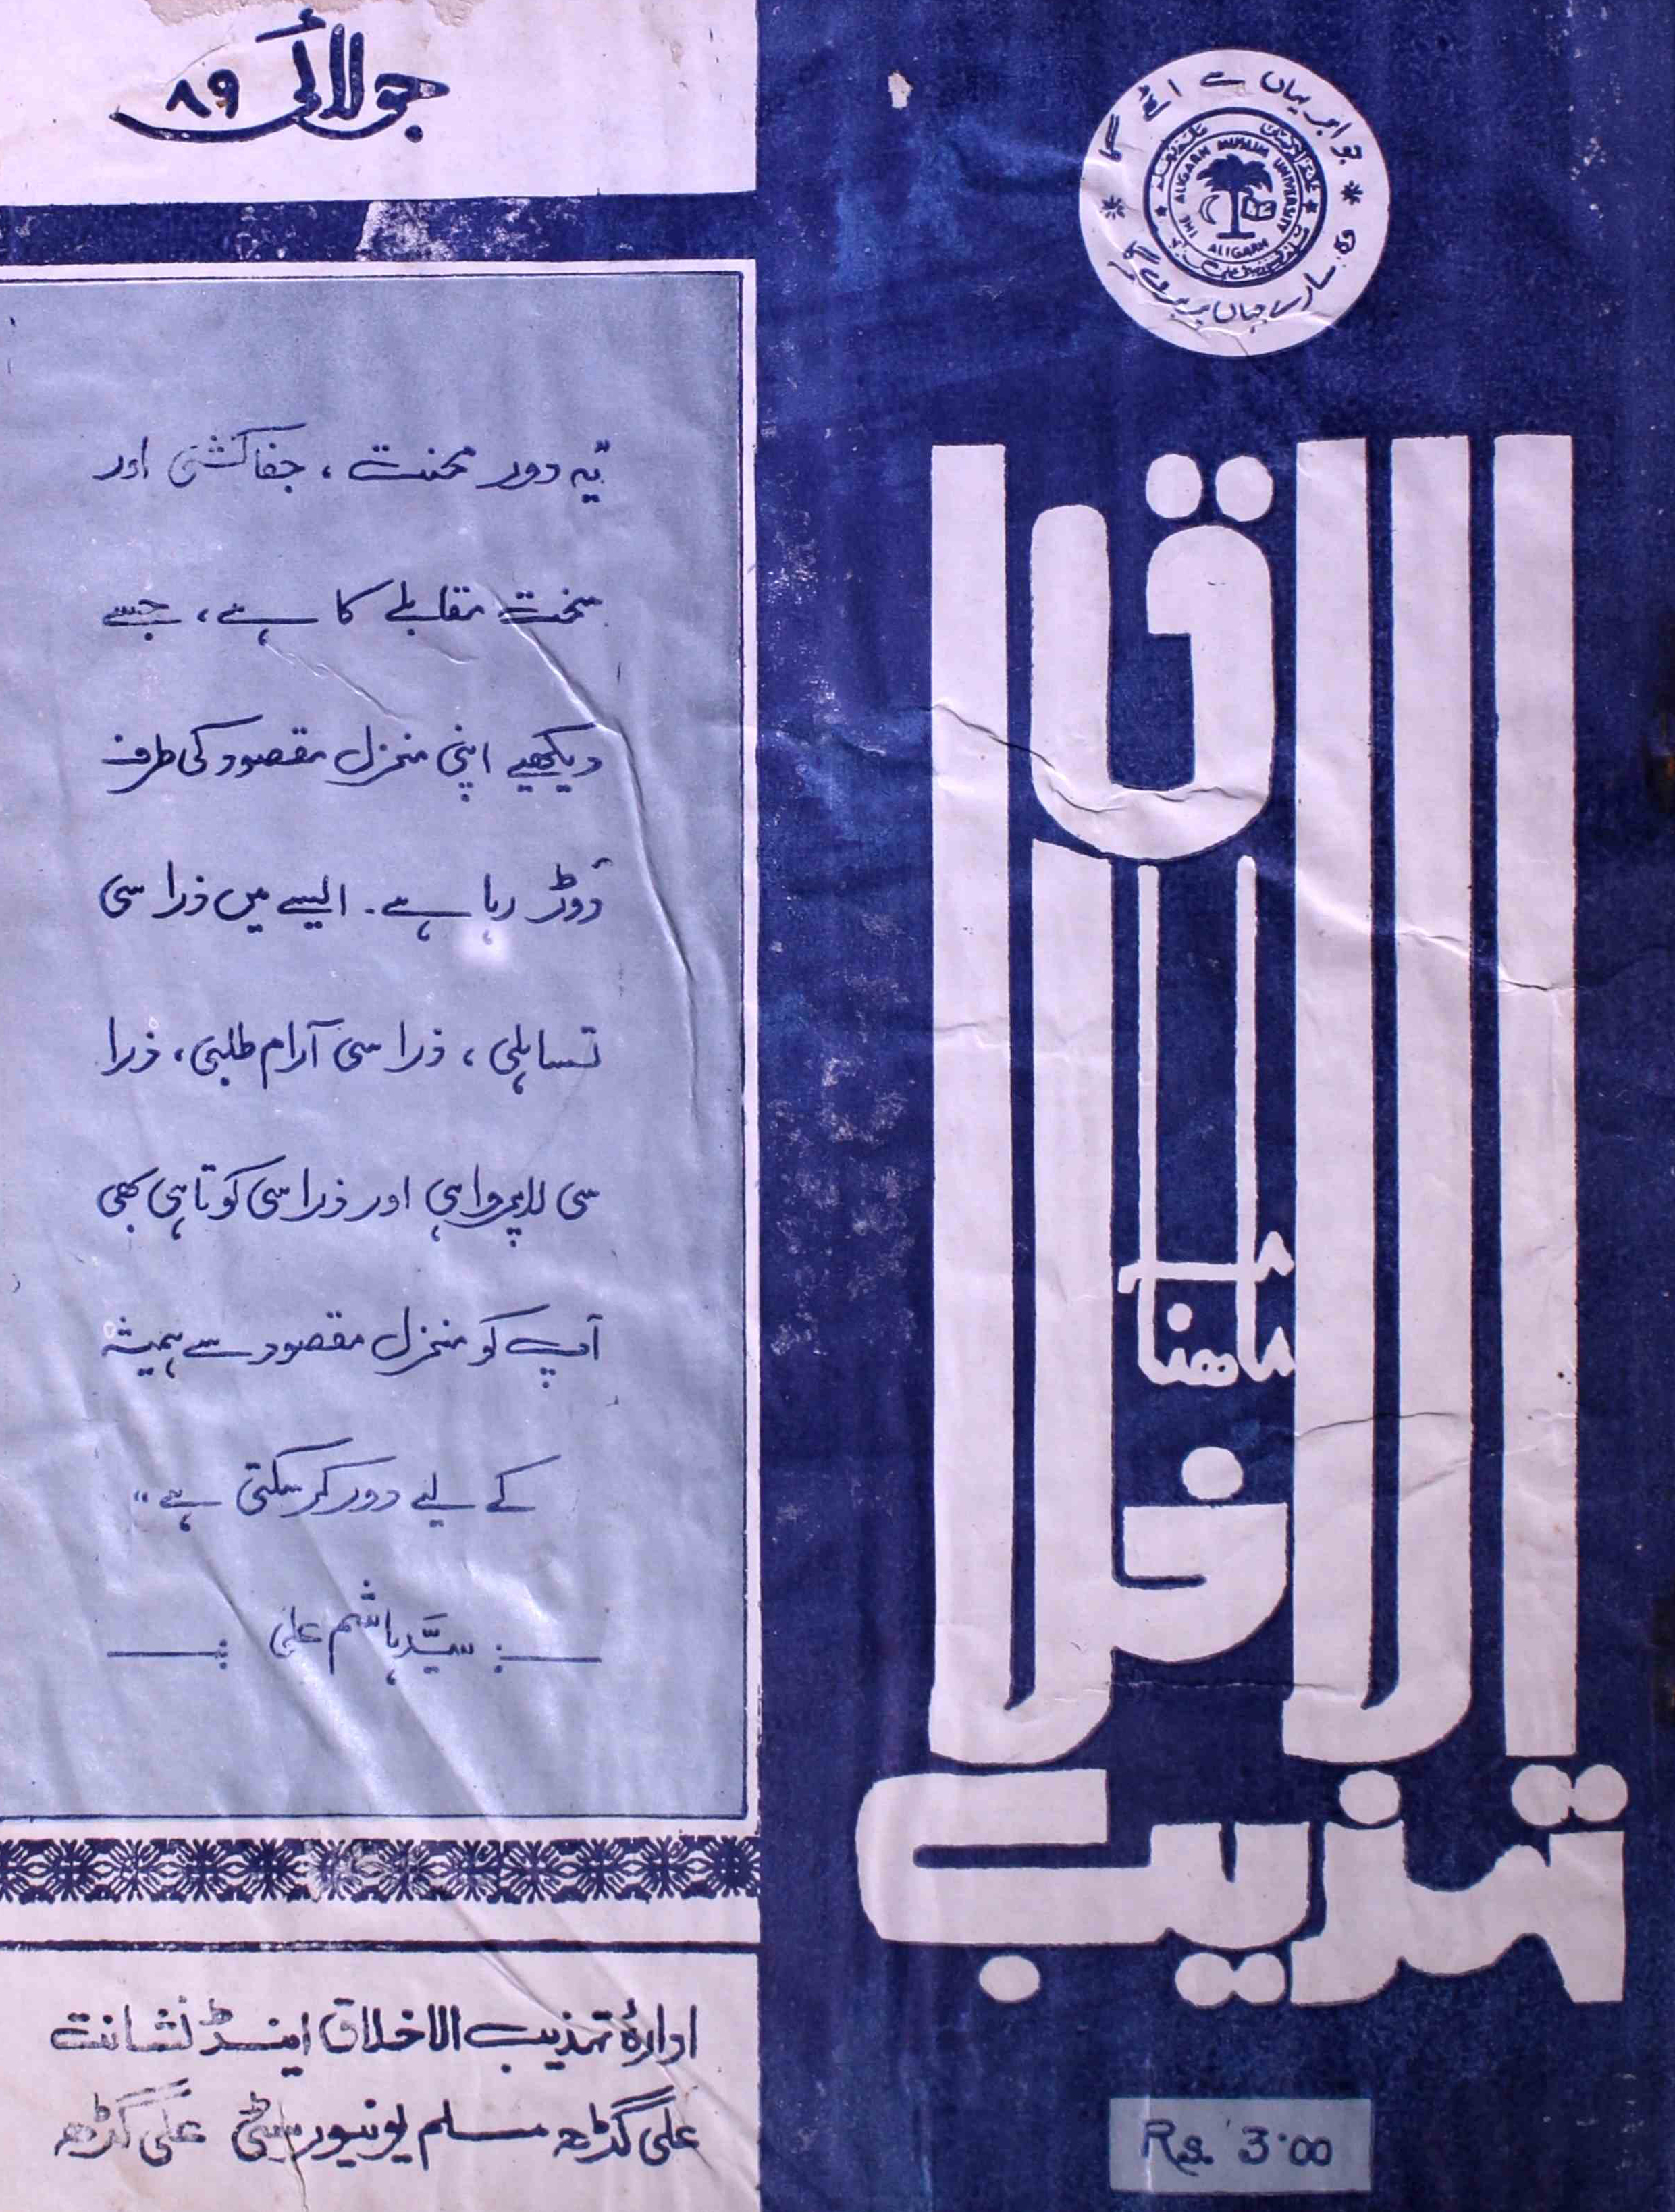 جولائی ۸۹
جو ابر یہاں سے اٹھے گا
وہ سارے جہاں پر برسے گا
THE ALIGARH MUSLIM UNIVERSITY
ALIGARH
ماہنامہ
تہذیب الاخلاق
"یہ دور محنت، جفاکشی اور
سخت مقابلے کا ہے، جسے
دیکھیے اپنی منزل مقصود کی طرف
دوڑ رہا ہے۔ ایسے میں ذرا سی
تساہلی، ذرا سی آرام طلبی، ذرا
سی لاپرواہی اور ذرا سی کوتاہی بھی
آپ کو منزل مقصود سے ہمیشہ
کے لیے دور کر سکتی ہے"
سیّد ہاشم علی
ادارۂ تہذیب الاخلاق اینڈ نشانت
علی گڑھ مسلم یونیورسٹی علی گڑھ
Rs. 3.00